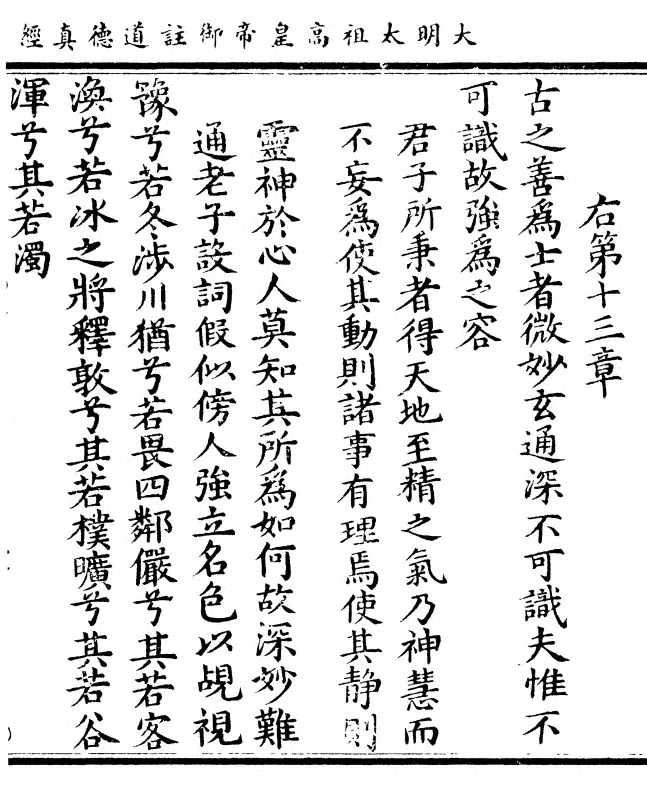 大明太祖高皇帝御註道德真經
右第十三章
古之善爲士者微妙玄通深不可識夫惟不
可識故強爲之容
君子所秉者得天地至精之氣乃神慧而
不妄爲使其動則諸事有理焉使其静則
靈神於心人莫知其所爲如何故深妙難
通老子設詞假似傍人強立名色以覘視
豫兮若冬涉川猶兮若畏四鄰儼兮其若客
渙兮若冰之將釋敦兮其若樸曠兮其若谷
渾兮其若濁